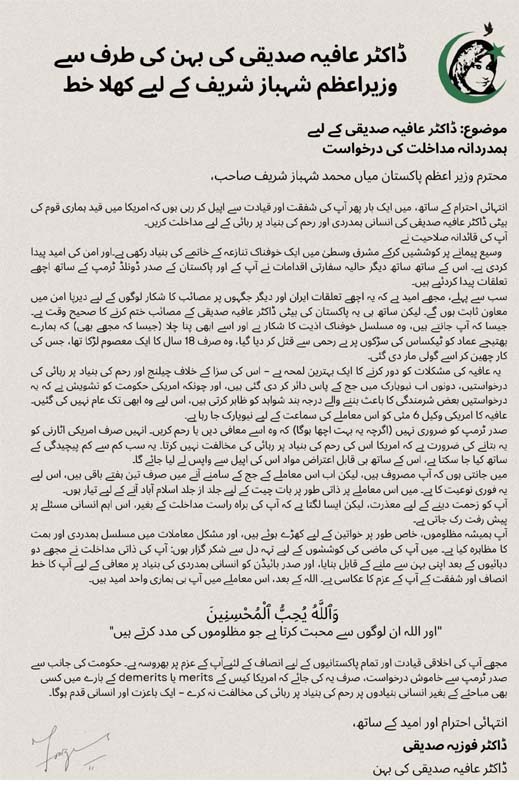 ڈاکٹر عافیہ صدیقی کی بہن کی طرف سے
وزیراعظم شہباز شریف کے لیے کھلا خط
موضوع: ڈاکٹر عافیہ صدیقی کے لیے
ہمدردانہ مداخلت کی درخواست
محترم وزیر اعظم پاکستان میاں محمد شہباز شریف صاحب،
انتہائی احترام کے ساتھ، میں ایک بار پھر آپ کی شفقت اور قیادت سے اپیل کر رہی ہوں کہ امریکا میں قید ہماری قوم کی
بیٹی ڈاکٹر عافیہ صدیقی کی انسانی ہمدردی اور رحم کی بنیاد پر رہائی کے لیے مداخلت کریں۔
آپ کی قائدانہ صلاحیت نے
وسیع پیمانے پر کوششیں کرکے مشرق وسطیٰ میں ایک خوفناک تنازعہ کے خاتمے کی بنیاد رکھی ہے۔اور امن کی امید پیدا
کردی ہے۔ اس کے ساتھ ساتھ دیگر حالیہ سفارتی اقدامات نے آپ کے اور پاکستان کے صدر ڈونلڈ ٹرمپ کے ساتھ اچھے
تعلقات پیدا کردئیے ہیں۔
سب سے پہلے، مجھے امید ہے کہ یہ اچھے تعلقات ایران اور دیگر جگہوں پر مصائب کا شکار لوگوں کے لیے دیرپا امن میں
معاون ثابت ہوں گے۔ لیکن ساتھ ہی یہ پاکستان کی بیٹی ڈاکٹر عافیہ صدیقی کے مصائب ختم کرنے کا صحیح وقت ہے۔
جیسا کہ آپ جانتے ہیں، وہ مسلسل خوفناک اذیت کا شکار ہے اور اسے ابھی پتا چلا (جیسا کہ مجھے بھی) کہ ہمارے
بھتیجے عماد کو ٹیکساس کی سڑکوں پر بے رحمی سے قتل کر دیا گیا، وہ صرف 18 سال کا ایک معصوم لڑکا تھا، جس کی
کار چھین کر اسے گولی مار دی گئی۔
یہ عافیہ کی مشکلات کو دور کرنے کا ایک بہترین لمحہ ہے – اس کی سزا کے خلاف چیلنج اور رحم کی بنیاد پر رہائی کی
درخواستیں، دونوں اب نیویارک میں جج کے پاس دائر کر دی گئی ہیں، اور چونکہ امریکی حکومت کو تشویش ہے کہ یہ
درخواستیں بعض شرمندگی کا باعث بننے والے درجہ بند شواہد کو ظاہر کرتی ہیں، اس لیے وہ ابھی تک عام نہیں کی گئیں۔
عافیہ کا امریکی وکیل 6 مئی کو اس معاملے کی سماعت کے لیے نیویارک جا رہا ہے۔
صدر ٹرمپ کو ضروری نہیں (اگرچہ یہ بہت اچھا ہوگا) کہ وہ اسے معافی دیں یا رحم کریں۔ انہیں صرف امریکی اٹارنی کو
یہ بتانے کی ضرورت ہے کہ امریکا اس کی رحم کی بنیاد پر رہائی کی مخالفت نہیں کرتا۔ یہ سب کم سے کم پیچیدگی کے
ساتھ کیا جا سکتا ہے، اس کے ساتھ ہی قابل اعتراض مواد اس کی اپیل سے واپس لے لیا جائے گا۔
میں جانتی ہوں کہ آپ مصروف ہیں، لیکن اب اس معاملے کے جج کے سامنے آنے میں صرف تین ہفتے باقی ہیں، اس لیے
یہ فوری نوعیت کا ہے۔ میں اس معاملے پر ذاتی طور پر بات چیت کے لیے جلد از جلد اسلام آباد آنے کے لیے تیار ہوں۔
آپ کو زحمت دینے کے لیے معذرت، لیکن ایسا لگتا ہے کہ آپ کی براہ راست مداخلت کے بغیر، اس اہم انسانی مسئلے پر
پیش رفت رک جاتی ہے۔
آپ ہمیشہ مظلوموں، خاص طور پر خواتین کے لیے کھڑے ہوئے ہیں، اور مشکل معاملات میں مسلسل ہمدردی اور ہمت
کا مظاہرہ کیا ہے۔ میں آپ کی ماضی کی کوششوں کے لیے تہہ دل سے شکر گزار ہوں: آپ کی ذاتی مداخلت نے مجھے دو
دہائیوں کے بعد اپنی بہن سے ملنے کے قابل بنایا، اور صدر بائیڈن کو انسانی ہمدردی کی بنیاد پر معافی کے لیے آپ کا خط
انصاف اور شفقت کے آپ کے عزم کا عکاسی ہے۔ اللہ کے بعد، اس معاملے میں آپ ہی ہماری واحد امید ہیں۔
وَٱللَّهُ يُحِبُّ ٱلْمُحْسِنِينَ
"اور اللہ ان لوگوں سے محبت کرتا ہے جو مظلوموں کی مدد کرتے ہیں"
مجھے آپ کی اخلاقی قیادت اور تمام پاکستانیوں کے لیے انصاف کے لئیےآپ کے عزم پر بھروسہ ہے۔ حکومت کی جانب سے
صدر ٹرمپ سے خاموش درخواست، صرف یہ کی جائے کہ امریکا کیس کے merits یا demerits کے بارے میں کسی
بھی مباحثے کے بغیر انسانی بنیادوں پر رحم کی بنیاد پر رہائی کی مخالفت نہ کرے – ایک باعزت اور انسانی قدم ہوگا۔
انتہائی احترام اور امید کے ساتھ،
ڈاکٹر فوزیہ صدیقی
ڈاکٹر عافیہ صدیقی کی بہن